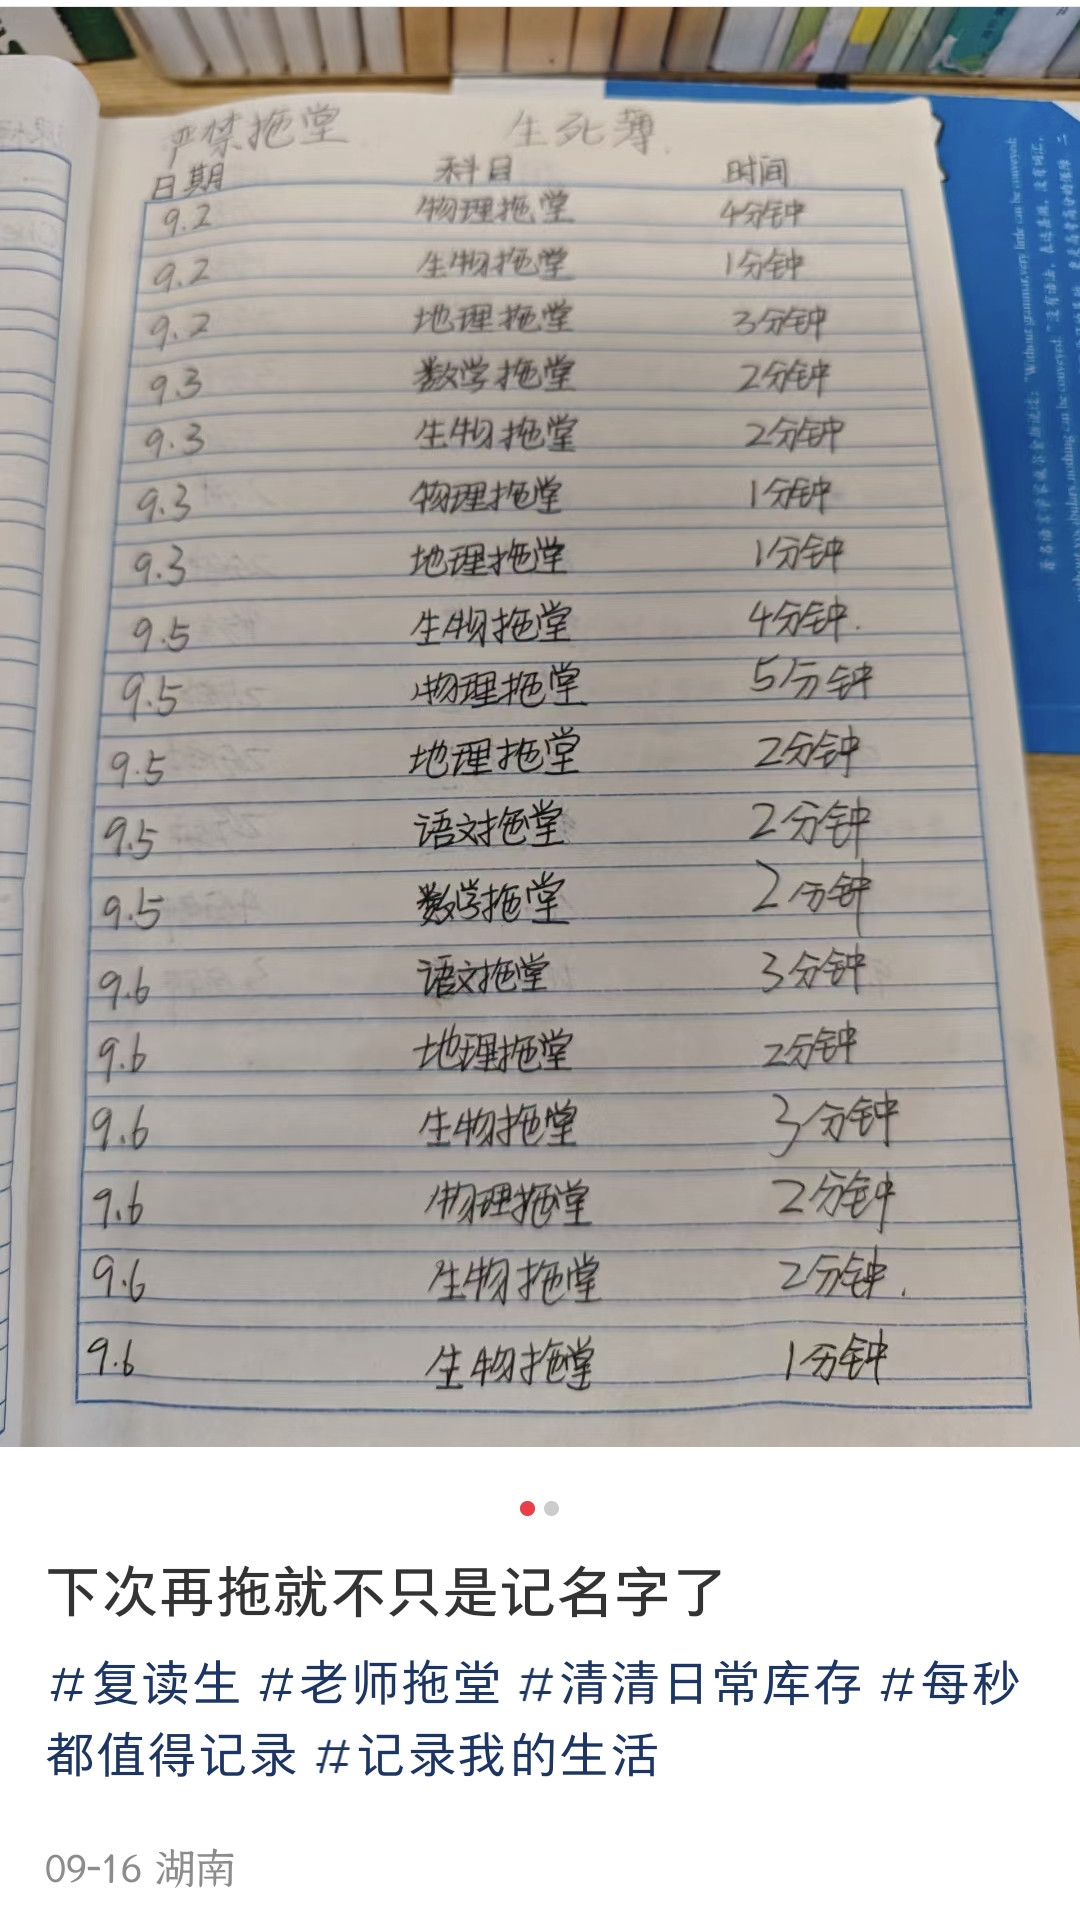 严禁拖堂 生死薄
日期 科目 时间
9.2 物理拖堂 4分钟
9.2 生物拖堂 1分钟
9.2 地理拖堂 3分钟
9.3 数学拖堂 2分钟
9.3 生物拖堂 2分钟
9.3 物理拖堂 1分钟
9.3 地理拖堂 1分钟
9.5 生物拖堂 4分钟.
9.5 物理拖堂 5分钟
9.5 地理拖堂 2分钟
9.5 语文拖堂 2分钟
9.5 数学拖堂 2分钟
9.6 语文拖堂 3分钟
9.6 地理拖堂 2分钟
9.6 生物拖堂 3分钟
9.6 物理拖堂 2分钟
9.6 生物拖堂 2分钟.
9.6 生物拖堂 1分钟
"Without grammar, very little can be conveyed;
下次再拖就不只是记名字了
#复读生 #老师拖堂 #清清日常库存 #每秒
都值得记录 #记录我的生活
09-16 湖南